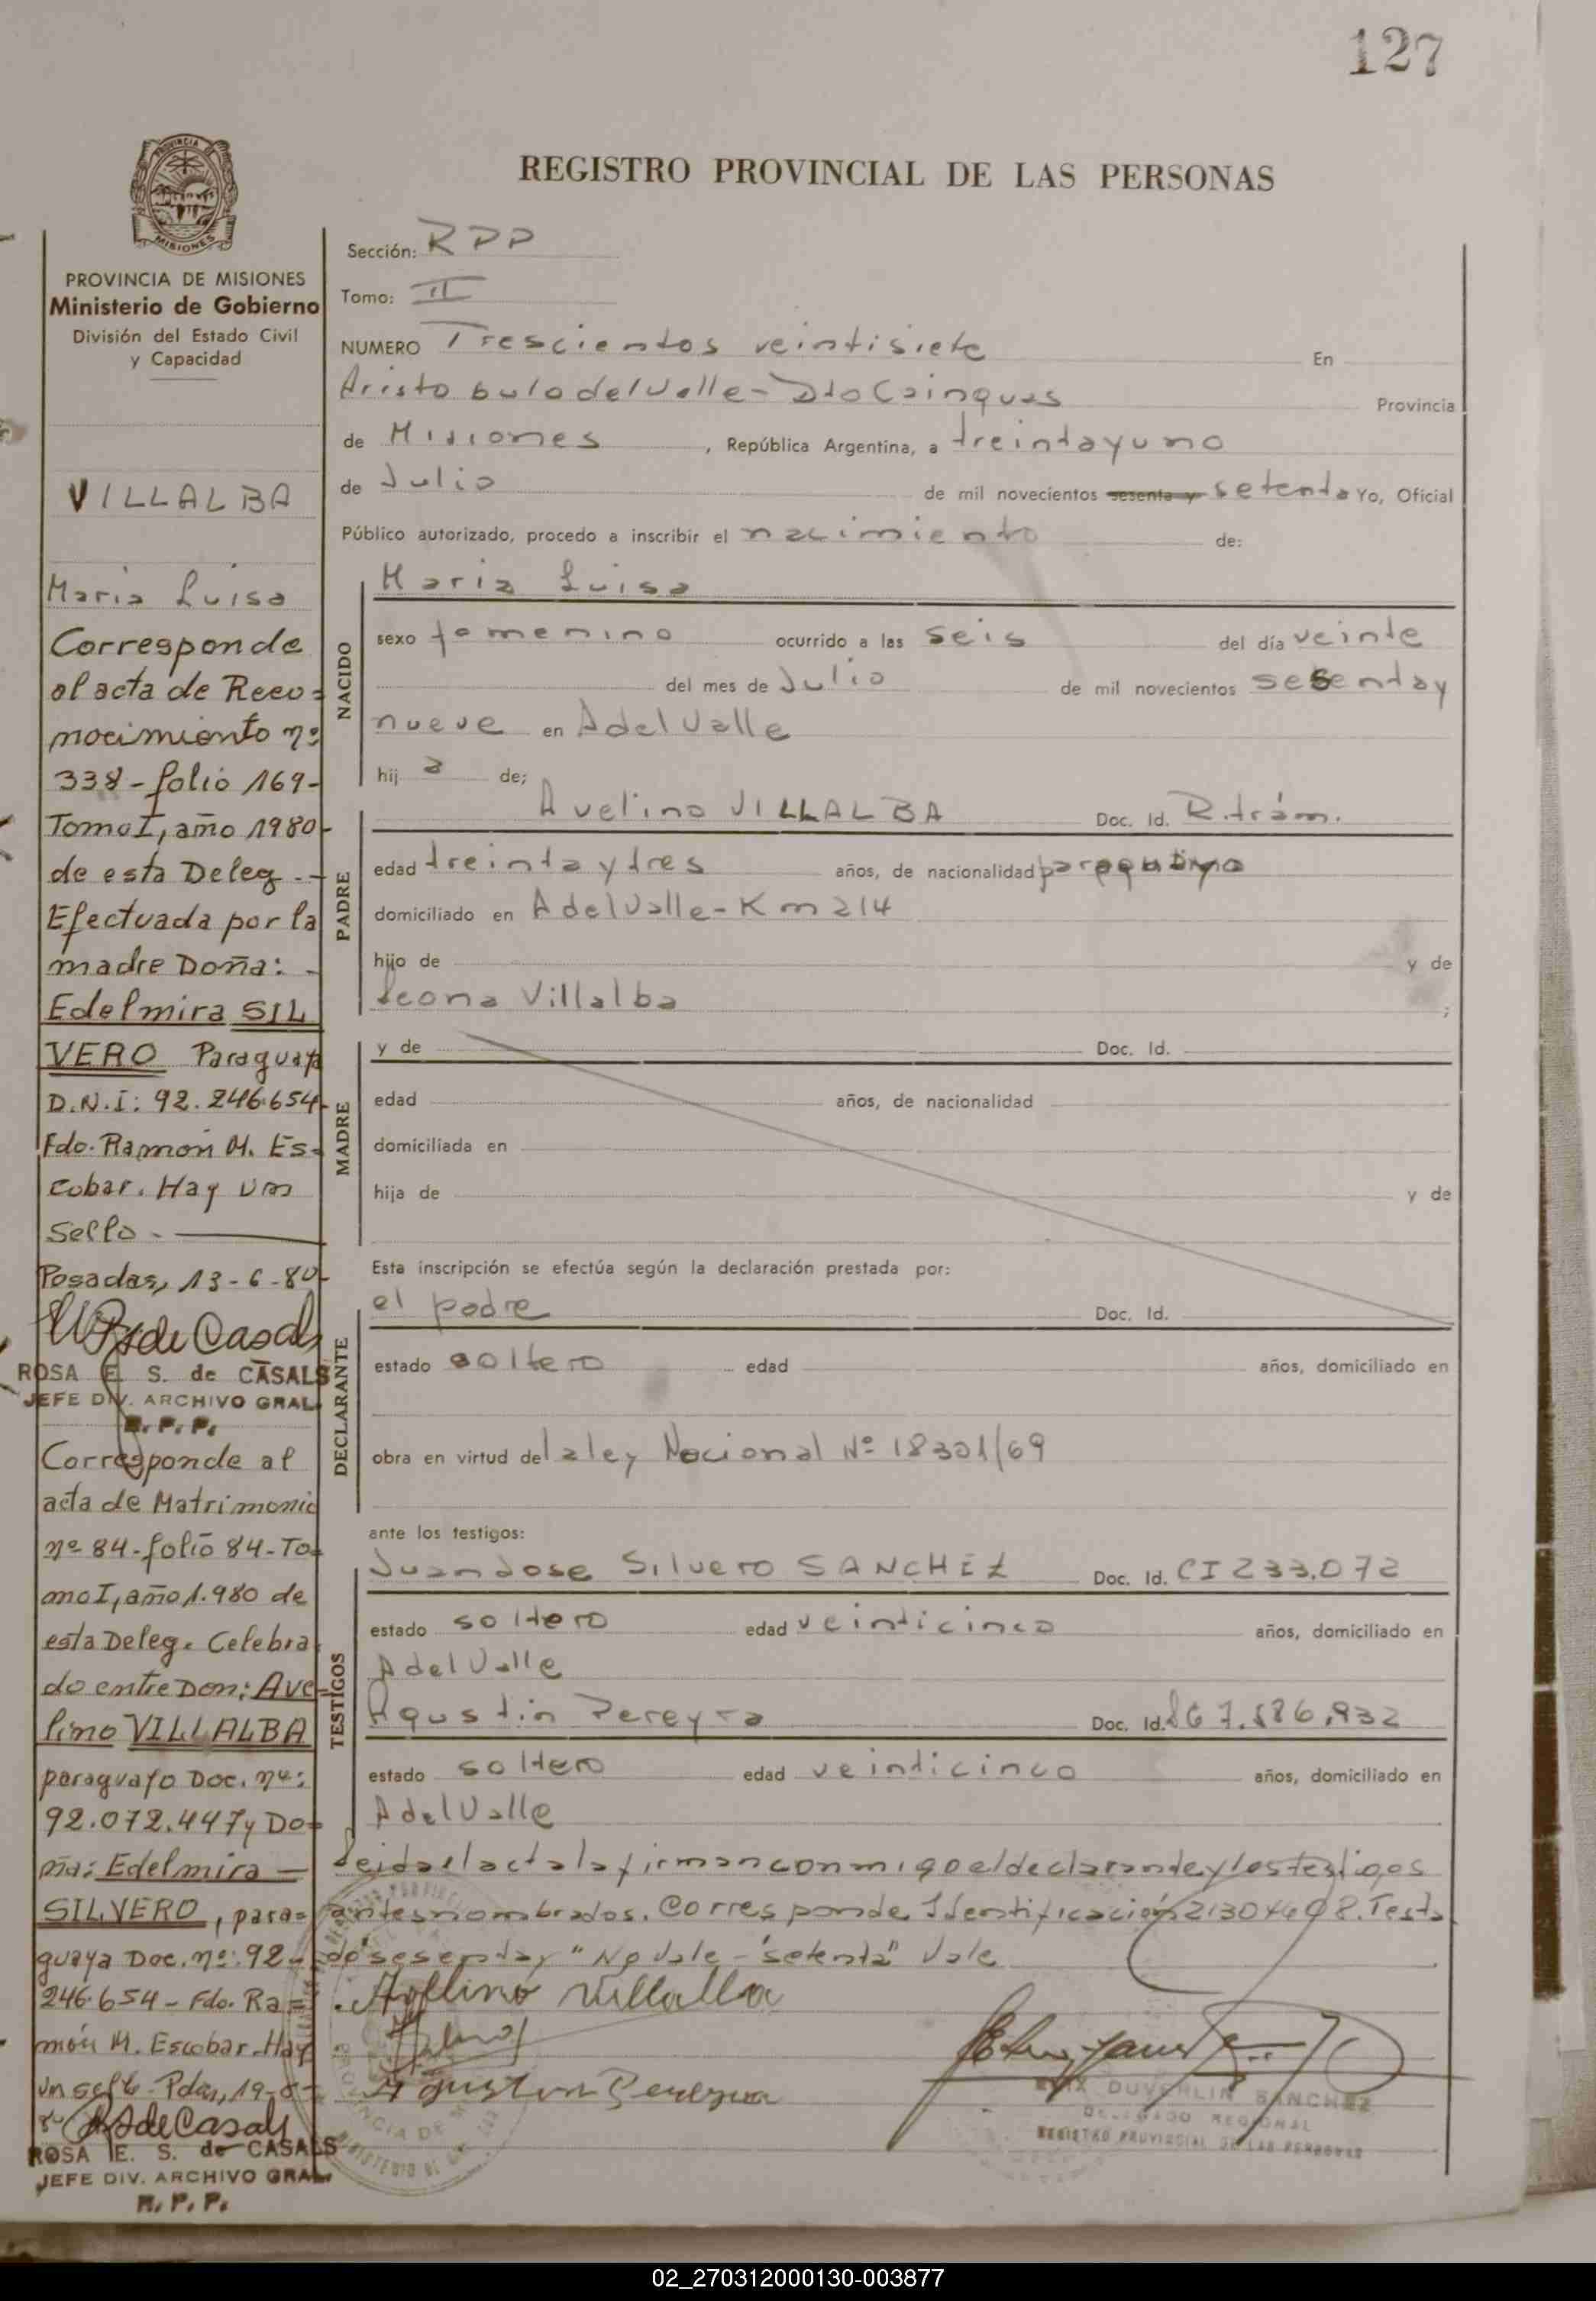 127
REGISTRO PROVINCIAL DE LAS PERSONAS
PROVINCIA DE MISIONES
Ministerio de Gobierno
División del Estado Civil
y Capacidad
VILLALBA
Maria Luisa
Corresponde
al acta de Reco=
nocimiento nº
338 - folio 169-
Tomo I, año 1980-
de esta Deleg.-
Efectuada por la
madre Doña: -
Edelmira SIL
VERO Paraguaya
D.N.I: 92.246.654-
Fdo. Ramón M. Es-
cobar. Hay un
Sello -
Posadas, 13-6-80-
ROSA E. S. de CASALS
JEFE DIV. ARCHIVO GRAL.
R. P. P.
Corresponde al
acta de Matrimonio
nº 84-folio 84-To=
mo I, año 1.980 de
esta Deleg. Celebra
do entre Don: Ave=
lino VILLALBA
paraguayo Doc. nº:
92.072.447 y Do=
ña: Edelmira -
SILVERO, para=
guaya Doc. nº: 92-
246.654 - Fdo. Ra=
món M. Escobar. Hay
un sello - Pdas, 19-
ROSA E. S. de CASALS
JEFE DIV. ARCHIVO GRAL.
R. P. P.
Sección: RPP
Tomo: II
NUMERO Trescientos veintisiete En
Aristobulo del Valle - Dto Cainguas Provincia
de Misiones , República Argentina, a treinta y uno
de Julio de mil novecientos sesenta y setenta Yo, Oficial
Público autorizado, procedo a inscribir el nacimiento de:
NACIDO
Maria Luisa
sexo femenino ocurrido a las seis del día veinte
del mes de Julio de mil novecientos sesenta y
nueve en A del Valle
hij a de;
PADRE
Avelino VILLALBA Doc. Id. R. trám.
edad treinta y tres años, de nacionalidad paraguayo
domiciliado en A del Valle - Km 214
hijo de y de
Leona Villalba ;
MADRE
y de Doc. Id.
edad años, de nacionalidad
domiciliada en
hija de y de
Esta inscripción se efectúa según la declaración prestada por:
DECLARANTE
el padre Doc. Id.
estado soltero edad años, domiciliado en
obra en virtud de la ley Nacional Nº 18301/69
ante los testigos:
TESTIGOS
Juan Jose Silvero SANCHEZ Doc. Id. CI 233.072
estado soltero edad veinticinco años, domiciliado en
A del Valle
Agustin Pereyra Doc. Id.
estado soltero edad veinticinco años, domiciliado en
A del Valle
Leida el acta la firman conmigo el declarante y los testigos
antes nombrados. Corresponde Identificación Testa
do "sesenta y" No Vale - "setenta" Vale
Avelino Villalba
Agustin Pereyra
DUVERLIN SANCHEZ
DELEGADO REGIONAL
REGISTRO PROVINCIAL DE LAS PERSONAS
02_270312000130-003877